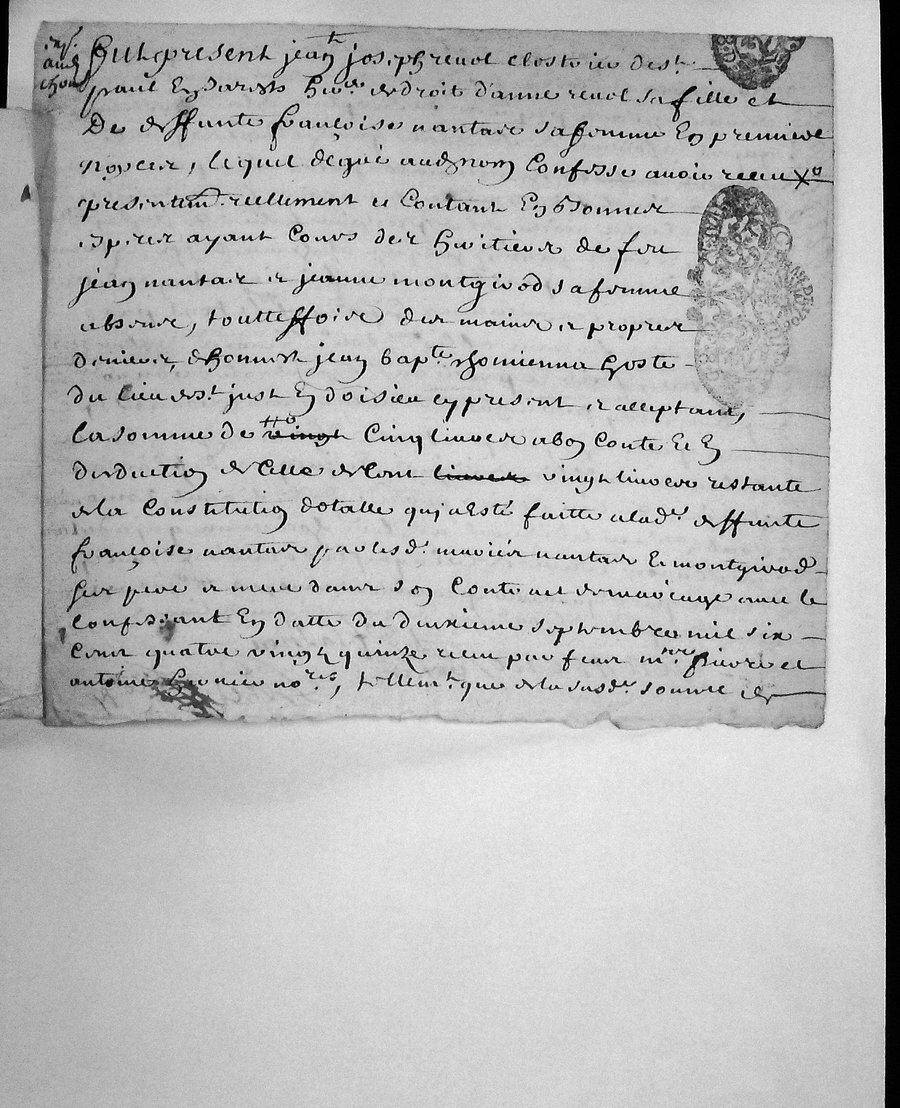 Fut present jean joseph revol clostrier de st
paul En Jarests h.re de droit d'anne revol sa fille et
De deffunte françoise nantas sa femme En premiere
nopces, lequel de gré aud nom Confesse avoir receu
presentem. reellement et Contant En bonnes
especes ayant Cours des heritiers de feu
jean nantas et jeanne montgirod sa femme
absens, touttesffois des mains et propres
deniers, d'honneste jean bap.te thomienna hoste
du lieu de st just En doisieu cy present et acceptant,
la somme de Cinq livres a bon Conte Et En
desduction de Celle de Cent vingt livres restante
de la Constitution dotalle qui a Esté faitte a lad. deffunte
françoise nantas par lesd. mariés nantas Et montgirod
ses pere et mere dans son Contract de mariage avec le
Confessant En datte du deuxieme septembre mil six
Cens quatre vingt quinze receu par feus m.res pierre et
antoine no.res, tellem.t que de la susd. somme de